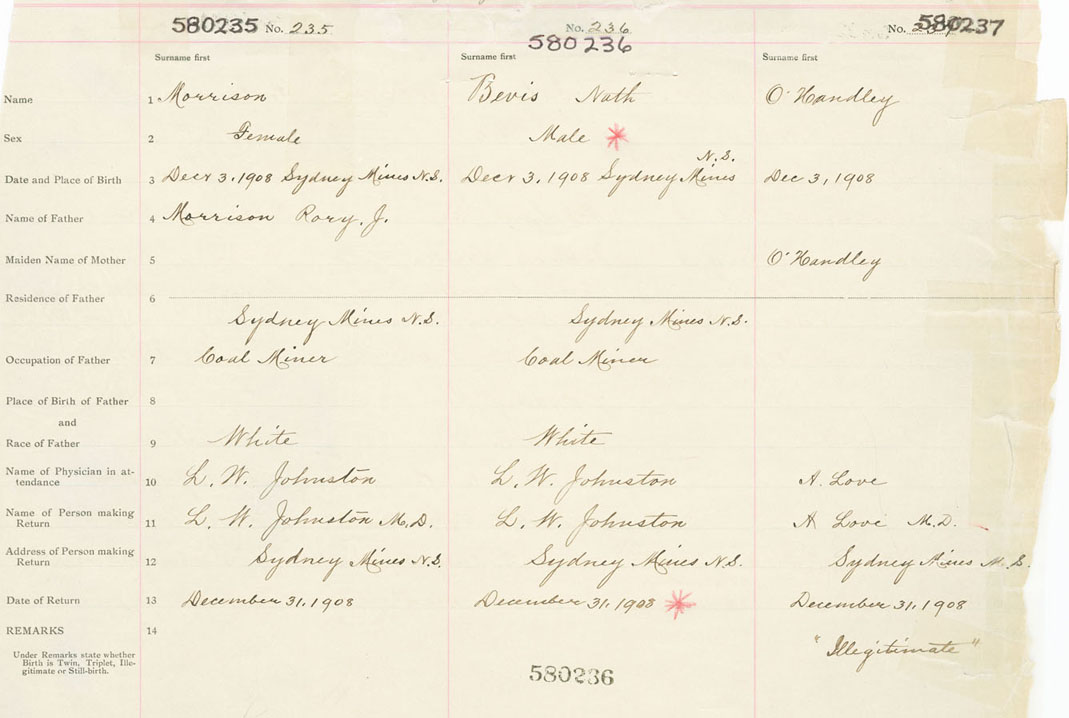 580235 No. 235 No. 236 No. 580237
580236
Surname first Surname first Surname first
Name 1 Morrison Bevis Nath O'Handley
Sex 2 Female Male
N.S.
Date and Place of Birth 3 Decr 3, 1908 Sydney Mines N.S. Decr 3, 1908 Sydney Mines Dec 3, 1908
Name of Father 4 Morrison Rory, J.
Maiden Name of Mother 5 O'Handley
Residence of Father 6
Sydney Mines N.S. Sydney Mines N.S.
Occupation of Father 7 Coal Miner Coal Miner
Place of Birth of Father 8
and
Race of Father 9 White White
Name of Physician in at-
tendance 10 L. W. Johnston L. W. Johnston A. Love
Name of Person making
Return 11 L. W. Johnston M.D. L. W. Johnston A Love M.D.
Address of Person making
Return 12 Sydney Mines N.S. Sydney Mines N.S. Sydney Mines N.S.
Date of Return 13 December 31, 1908 December 31, 1908 December 31, 1908
REMARKS 14
"Illegitimate"
Under Remarks state whether
Birth is Twin, Triplet, Ille-
gitimate or Still-birth.
580236